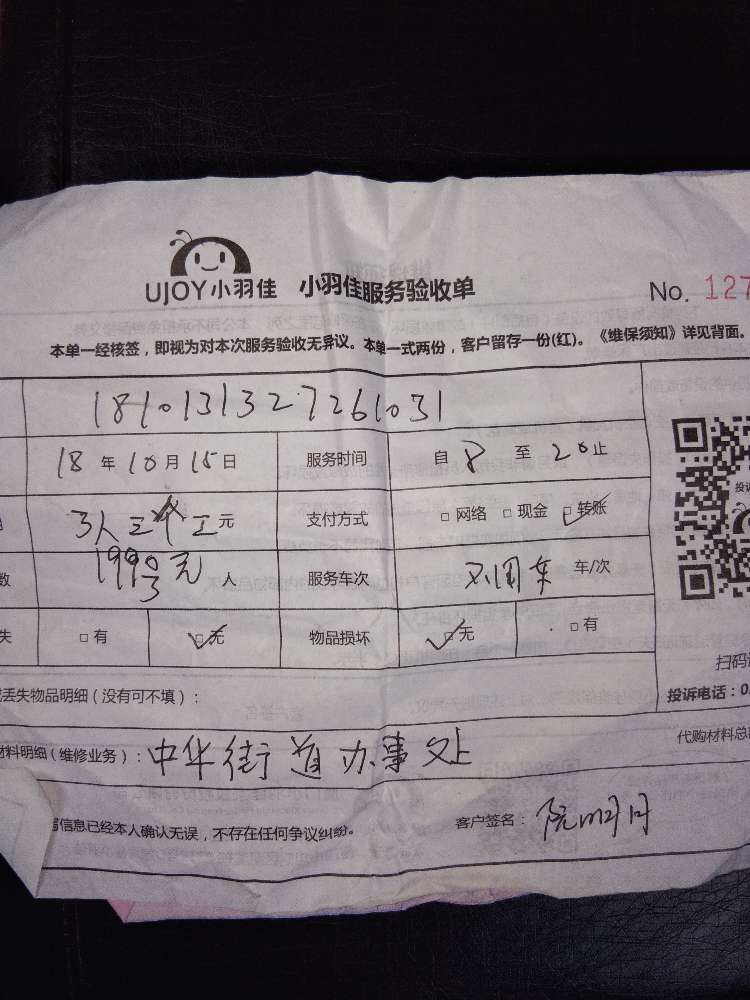 UJOY小羽佳 小羽佳服务验收单 No. 127
本单一经核签，即视为对本次服务验收无异议。本单一式两份，客户留存一份(红)。《维保须知》详见背面。
1810131327261031
18 年 10 月 15 日 服务时间 自 8 至 20 止
3人三个工 元 支付方式 □ 网络 □ 现金 ☑ 转账
数 元 人 服务车次 不用车 车/次
失 □ 有 ☑ 无 物品损坏 ☑ 无 □ 有
丢失物品明细（没有可不填）：
扫码
投诉电话：0
材料明细（维修业务）：中华街道办事处 代购材料总
信息已经本人确认无误，不存在任何争议纠纷。 客户签名：阮明月